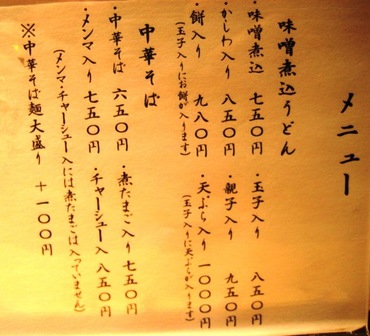 メニュー
味噌煮込うどん
・味噌煮込 七五〇円 ・玉子入り 八五〇円
・かしわ入り 八五〇円 ・親子入り 九五〇円
・餅入り 九八〇円 ・天ぷら入り 一〇〇〇円
(玉子入りにお餅が入ります) (玉子入りに天ぷらが入ります)
中華そば
・中華そば 六五〇円 ・煮たまご入り 七五〇円
・メンマ入り 七五〇円 ・チャーシュー入 八五〇円
(メンマ・チャーシュー入には煮たまごは入っていません)
※中華そば麺大盛り +一〇〇円